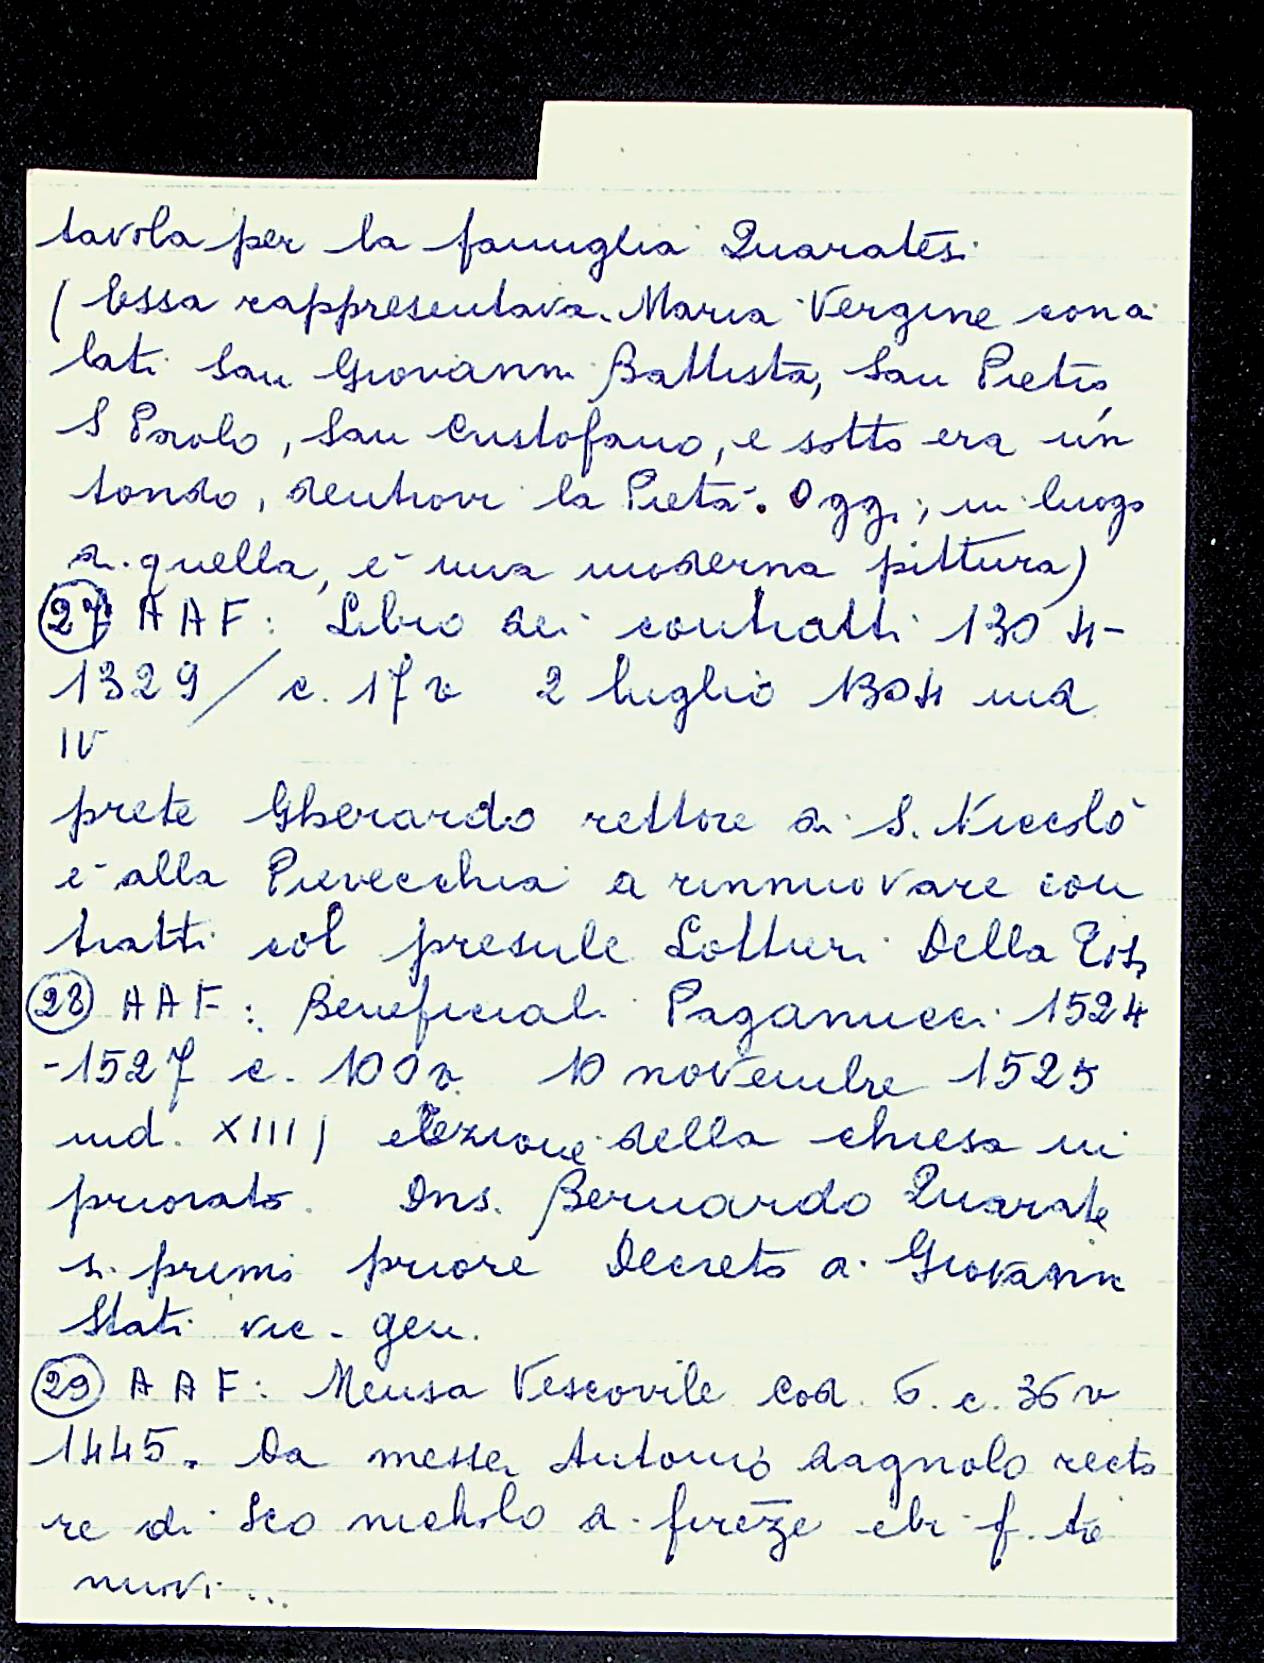 tavola per la famiglia Quaratesi
(Essa rappresentava Maria Vergine con a
lati San Giovanni Battista, San Pietro,
S Paolo, San Cristofano, e sotto era un
tondo, dentrovi la Pietà. Oggi, in luogo
di quella, è una moderna pittura)
27 AAF: Libro dei contratti 1304-
1329/ c. 17v 2 luglio 1304 ind.
IV
prete Gherardo rettore di S. Niccolò
è alla Pievecchia a rinnuovare con
tratti col presule Lottieri Della Tos.
28 AAF: Beneficiali Paganucci 1524
-1527 c. 100v. 10 novembre 1525
ind. XIIII elezione della chiesa in
priorato. Dns. Bernardo Quarate
si primo priore Decreto di Giovanni
Stati vic. gen.
29 AAF: Mensa Vescovile Cod. 6. c. 36v
1445. Da messer Antonio dagnolo recto
re di Sco nicholo di firēze ebi f. tē
nuovi...